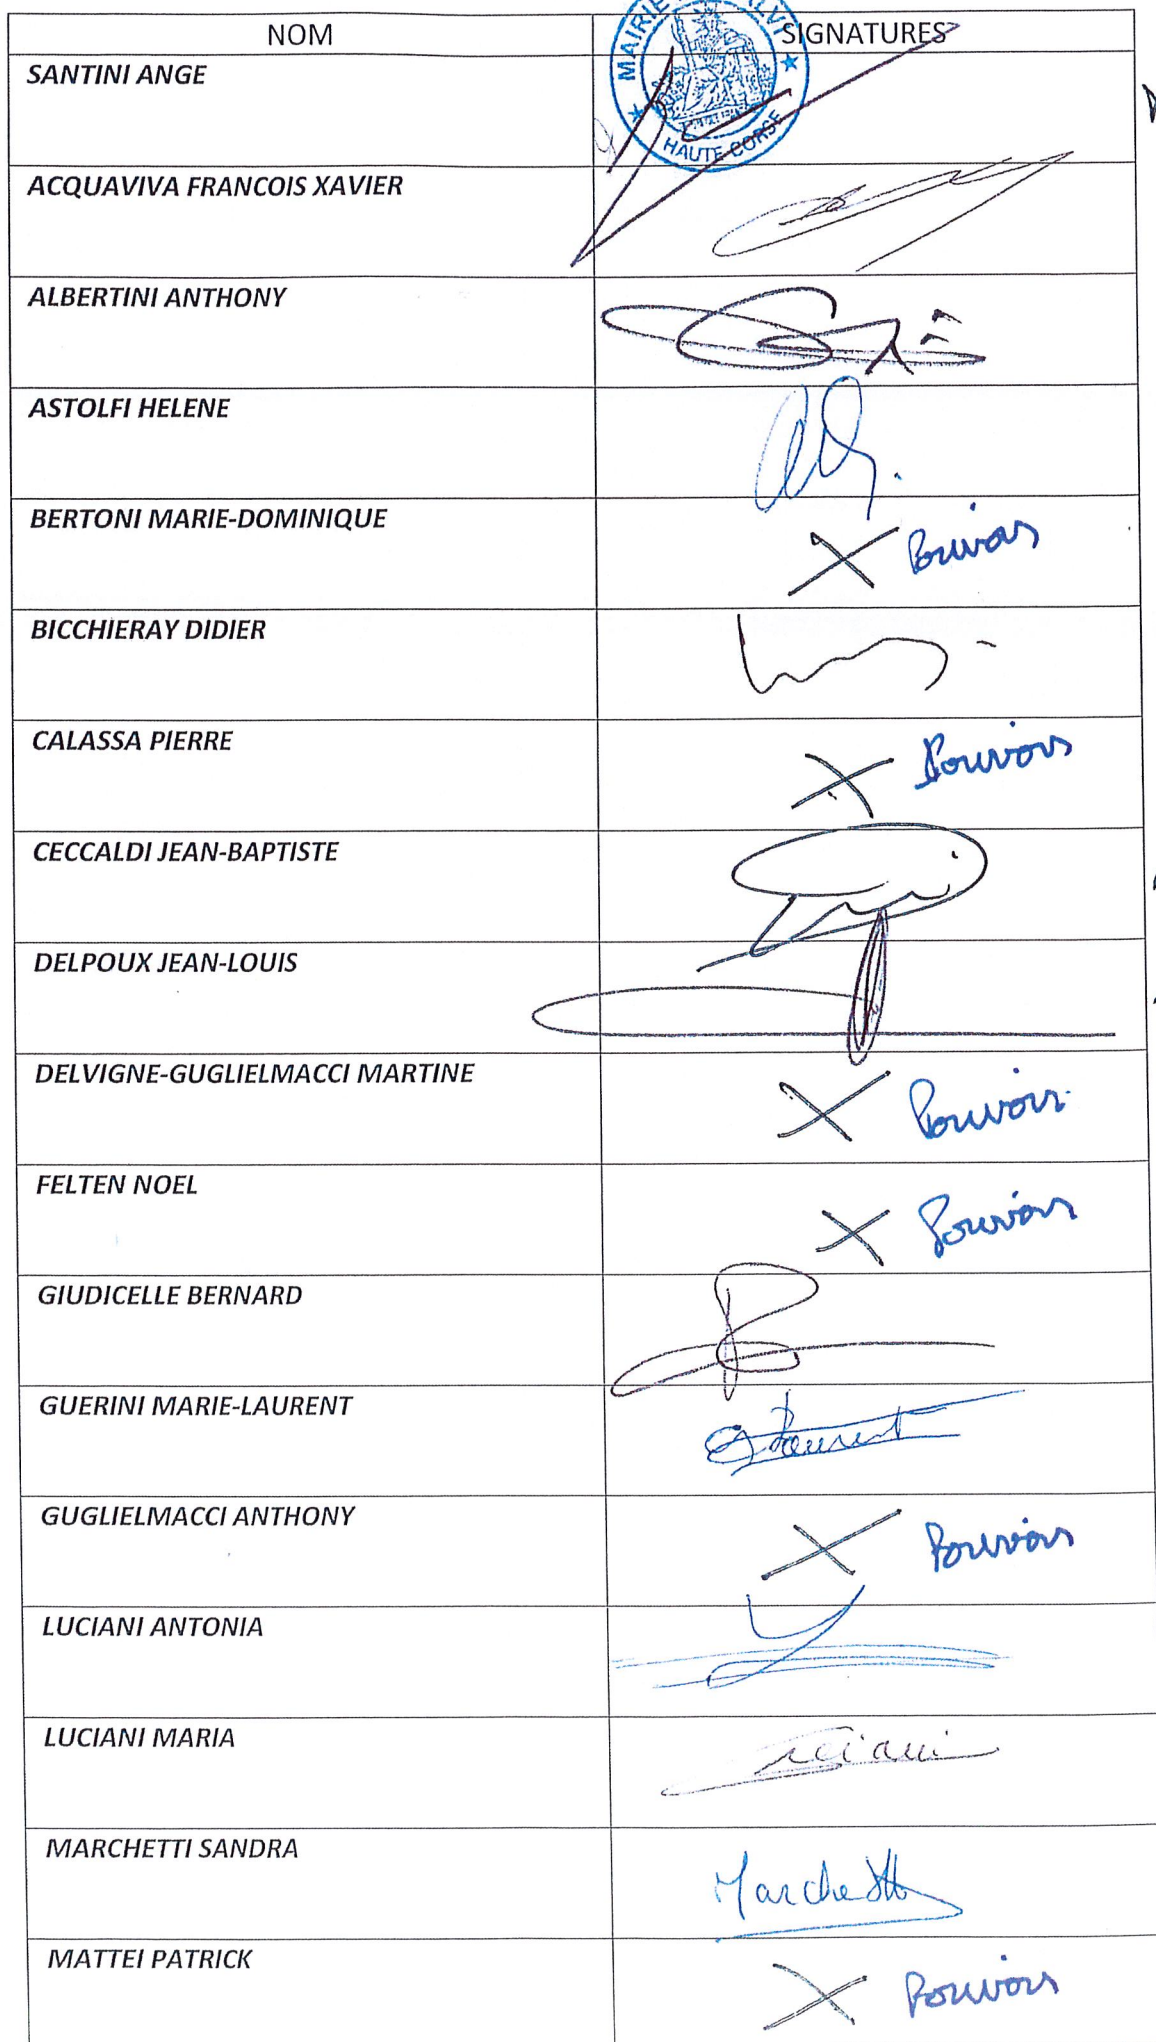 NOM SIGNATURES
MAIRIE
HAUTE-CORSE
SANTINI ANGE
ACQUAVIVA FRANCOIS XAVIER
ALBERTINI ANTHONY
ASTOLFI HELENE
BERTONI MARIE-DOMINIQUE
X Pouvoir
BICCHIERAY DIDIER
CALASSA PIERRE
X Pouvoir
CECCALDI JEAN-BAPTISTE
DELPOUX JEAN-LOUIS
DELVIGNE-GUGLIELMACCI MARTINE
X Pouvoir
FELTEN NOEL
X Pouvoir
GIUDICELLE BERNARD
GUERINI MARIE-LAURENT
GUGLIELMACCI ANTHONY
X Pouvoir
LUCIANI ANTONIA
LUCIANI MARIA
MARCHETTI SANDRA
Marchetti
MATTEI PATRICK
X Pouvoir